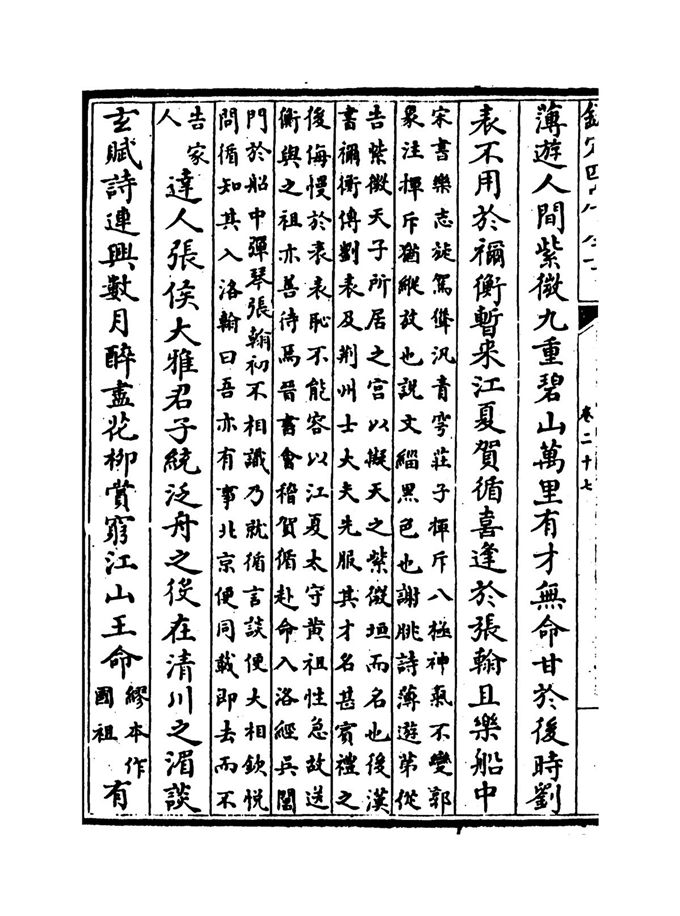 卷二十七
薄遊人間紫微九重碧山萬里有才無命甘於後時劉
表不用於禰衡暫來江夏賀循喜逢於張翰且樂船中
宋書樂志旋駕聳汎青穹莊子揮斥八極神氣不變郭
象注揮斥猶縱放也說文緇黑色也謝脁詩薄遊第從
告紫微天子所居之宫以擬天之紫微垣而名也後漢
書禰衡傳劉表及荆州士大夫先服其才名甚賓禮之
後侮慢於表表恥不能容以江夏太守黄祖性急故送
衡與之祖亦善待焉晉書會稽賀循赴命入洛經吳閶
門於船中彈琴張翰初不相識乃就循言談便大相欽悦
問循知其入洛翰曰吾亦有事北京便同載即去而不
告家
人
達人張侯大雅君子統泛舟之役在清川之湄談
玄賦詩連興數月醉盡花柳賞窮江山王命
繆本作
國祖
有